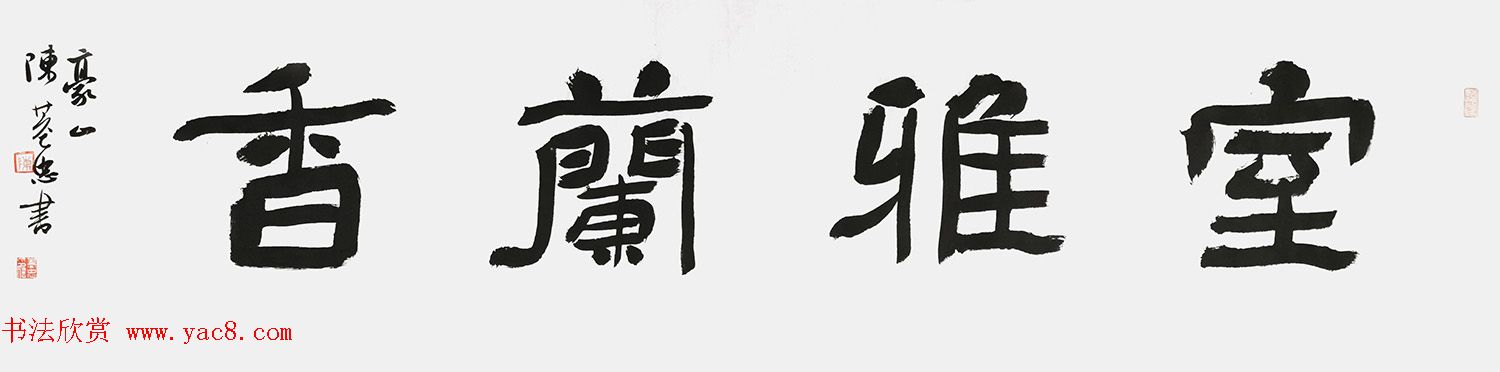 室雅蘭香
豪山
陳蒼忠書
书法欣赏 www.yac8.com